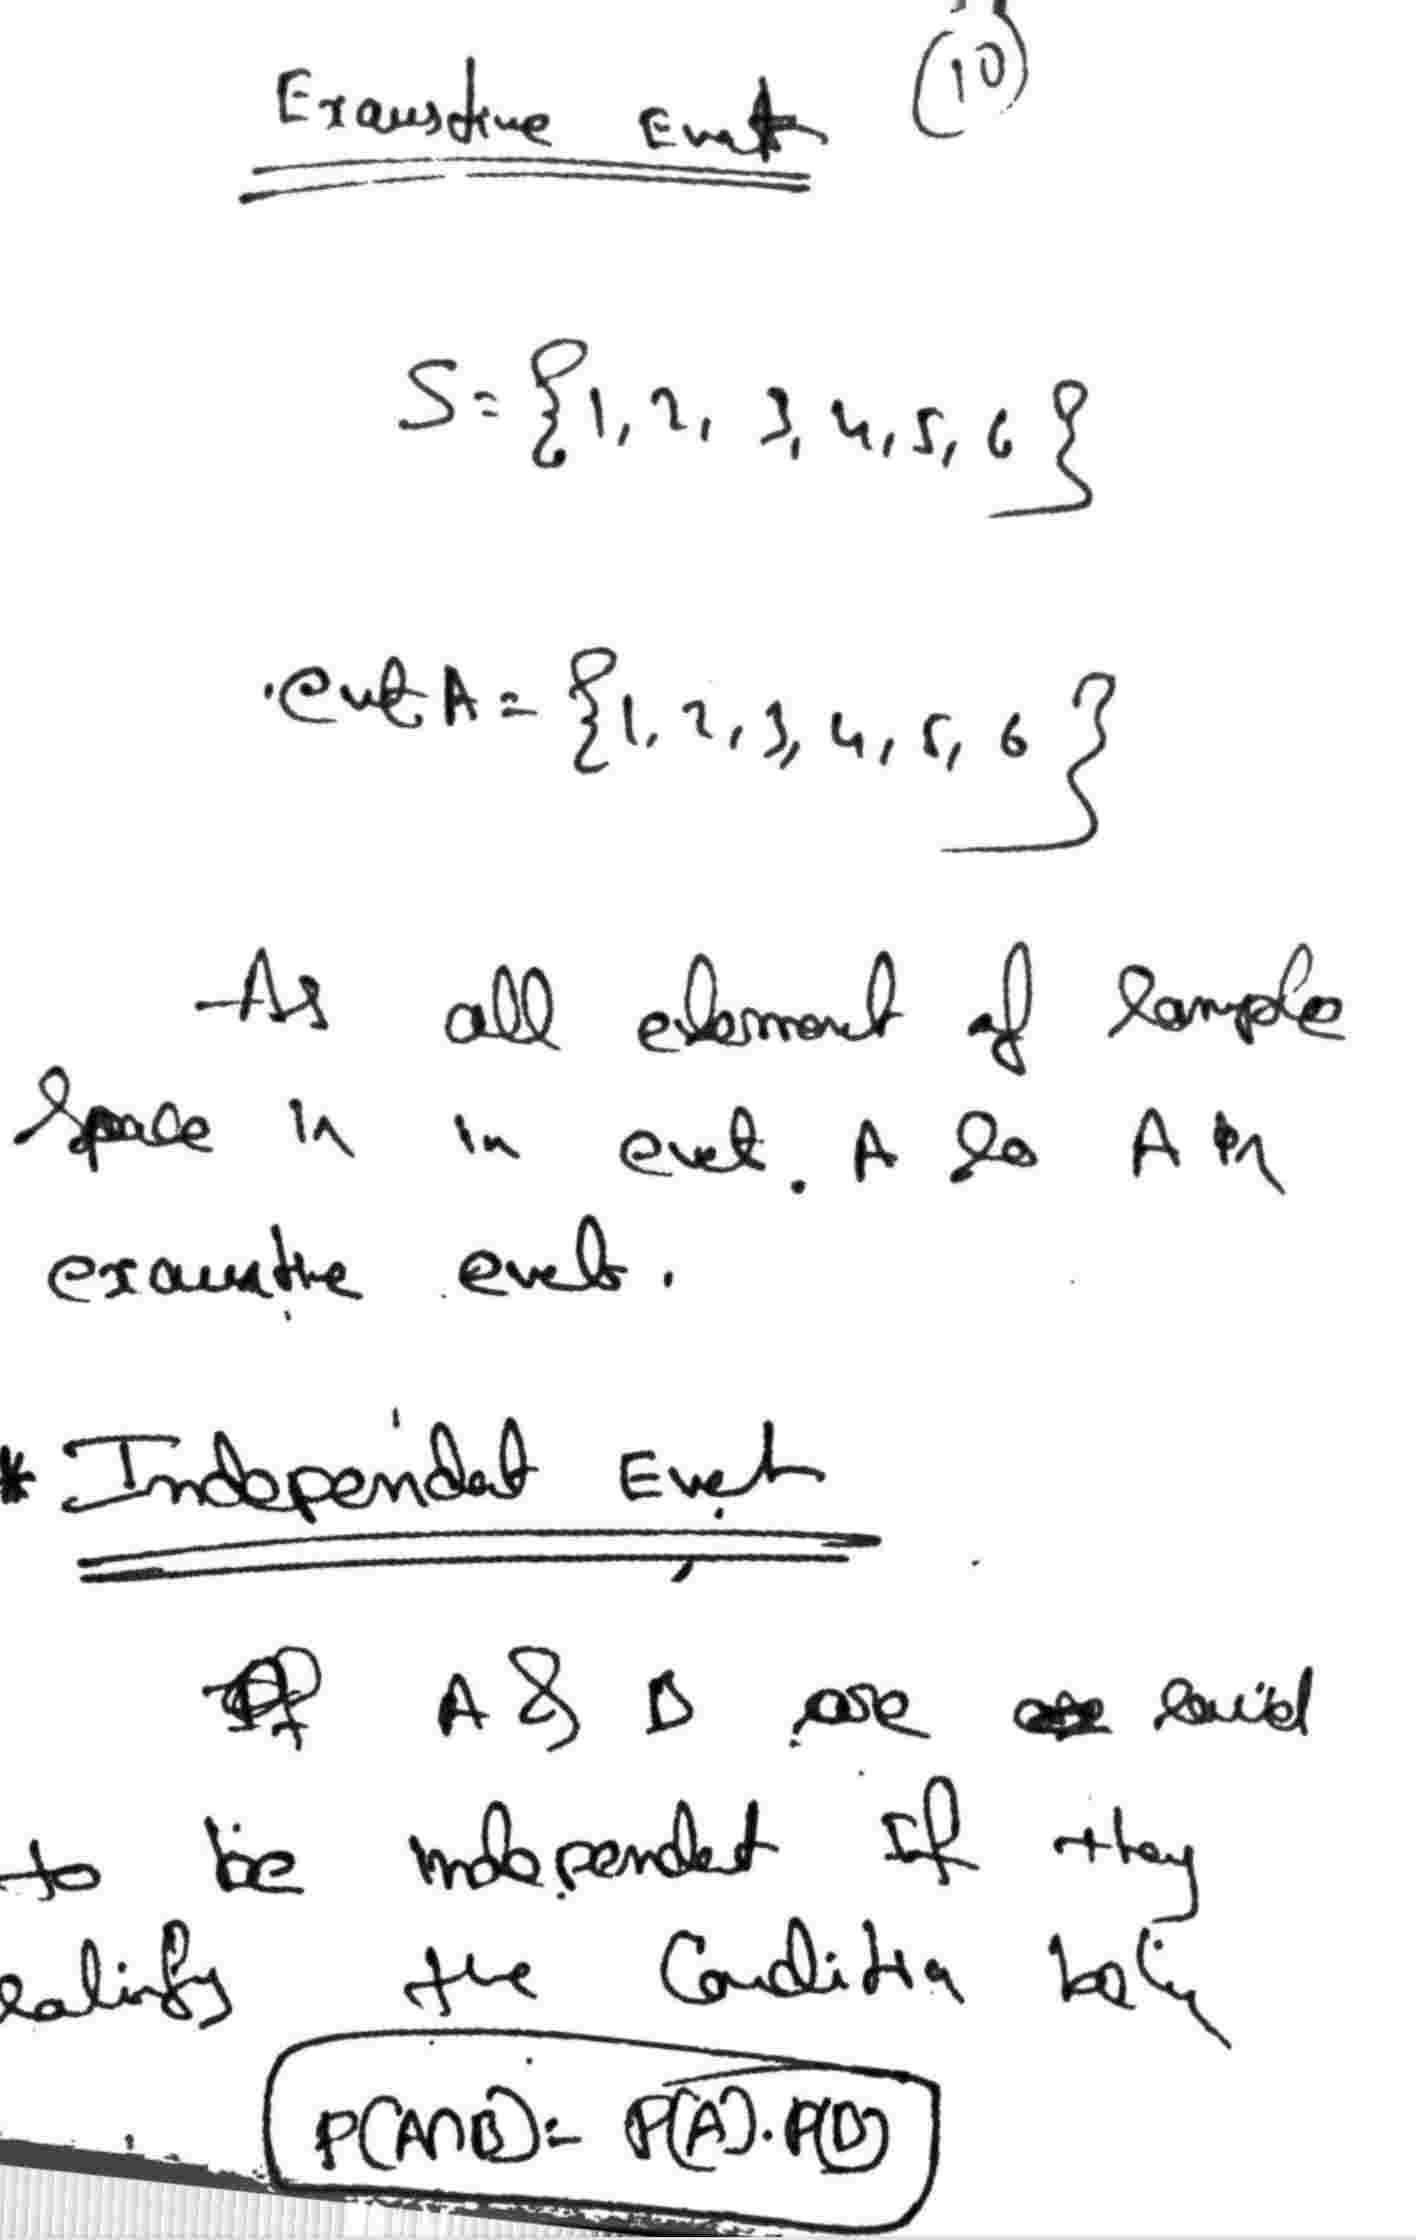 10
Exaustive Event
S = {1, 2, 3, 4, 5, 6}
event A = {1, 2, 3, 4, 5, 6}
As all element of sample
space is in event A so A is
exaustive event.
* Independent Event
If A & B are said
to be independent If they
satisfy the Condition below
P(A∩B) = P(A).P(B)